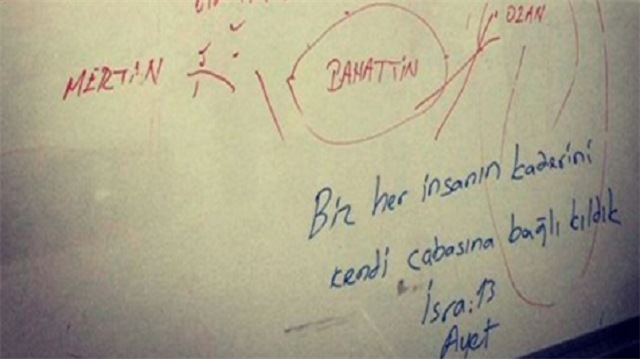 OZAN
MERTAN
BAHATTİN
Biz her insanın kaderini
kendi çabasına bağlı kıldık
İsra:13
Ayet